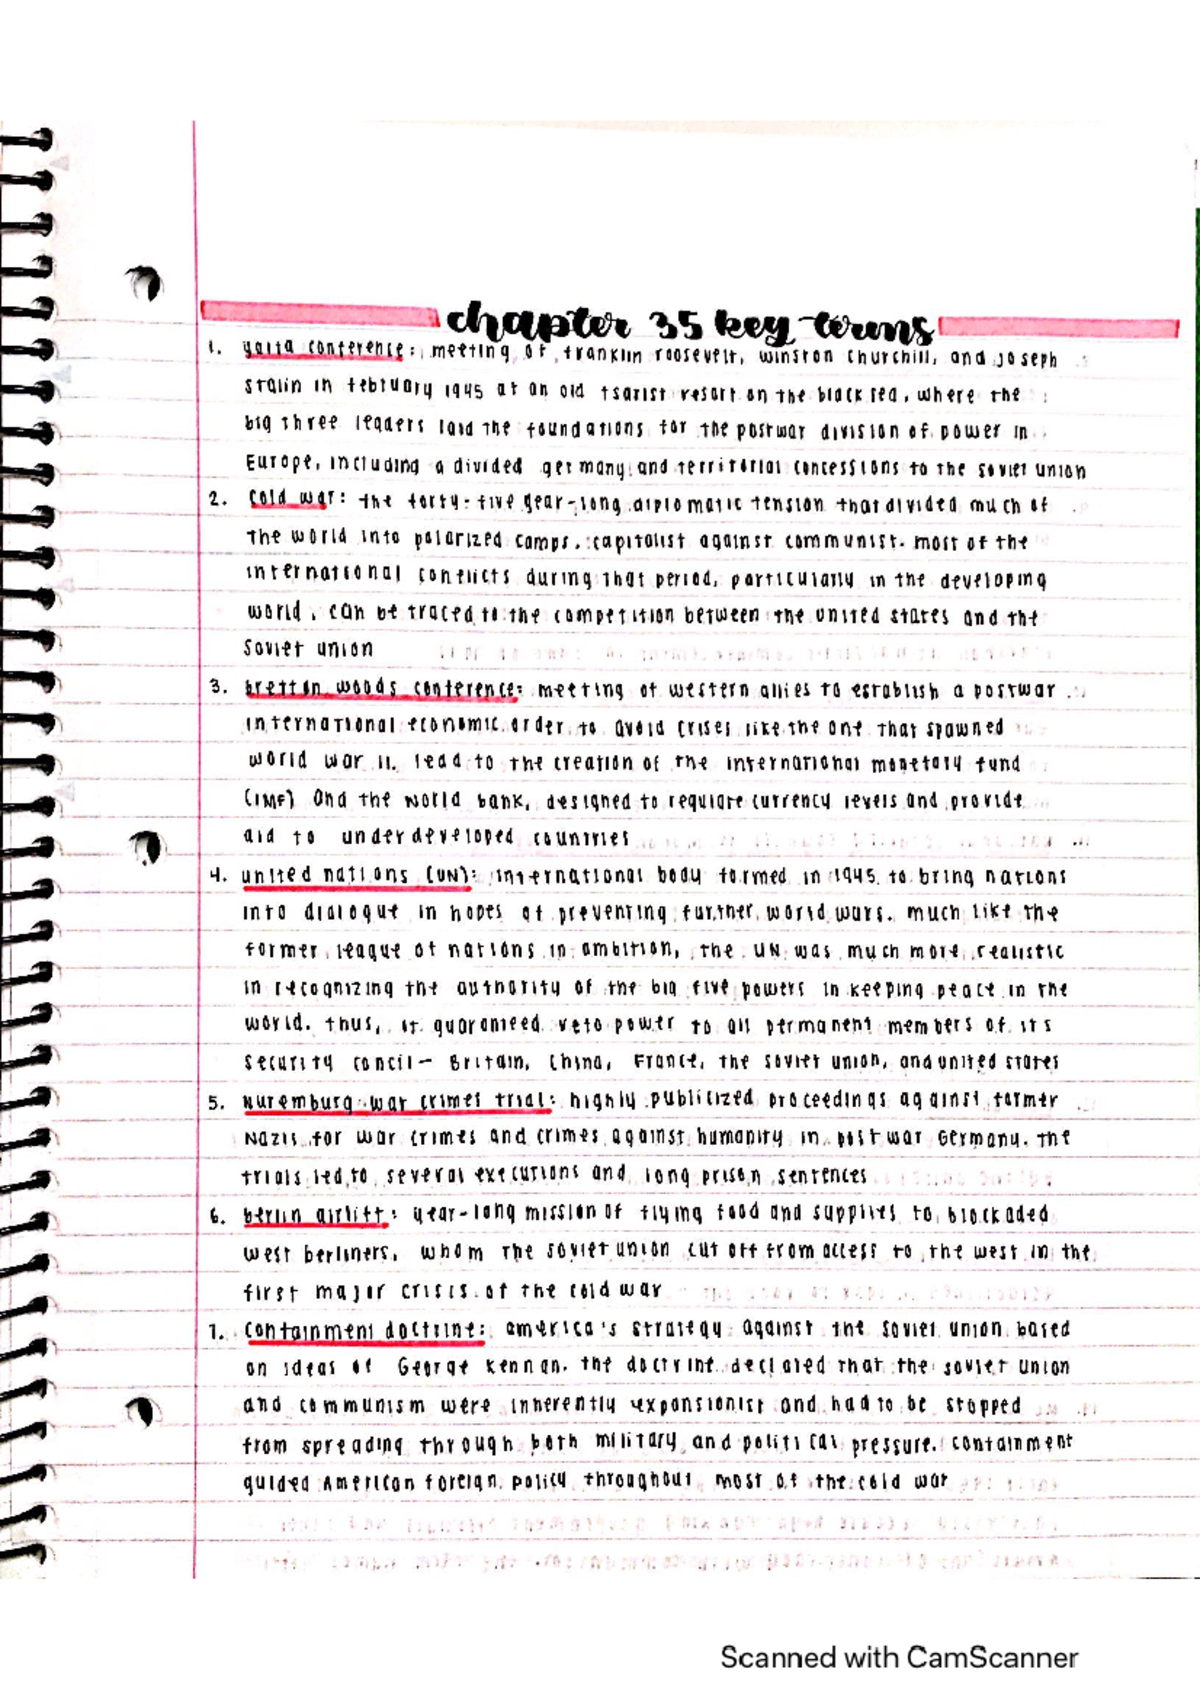 chapter 35 key terms
1. yalta conference: meeting of franklin roosevelt, winston churchill, and joseph
stalin in february 1945 at an old tsarist resort on the black sea, where the
big three leaders laid the foundations for the postwar division of power in
Europe, including a divided germany and territorial concessions to the soviet union
2. cold war: the forty-five year-long diplomatic tension that divided much of
the world into polarized camps, capitalist against communist. most of the
international conflicts during that period, particularly in the developing
world, can be traced to the competition between the united states and the
Soviet union
3. bretton woods conference: meeting of western allies to establish a postwar
international economic order to avoid crises like the one that spawned
world war II. lead to the creation of the international monetary fund
(IMF) and the world bank, designed to regulate currency levels and provide
aid to underdeveloped countries
4. united nations (UN): international body formed in 1945 to bring nations
into dialogue in hopes of preventing further world wars. much like the
former league of nations in ambition, the UN was much more realistic
in recognizing the authority of the big five powers in keeping peace in the
world. thus, it guaranteed veto power to all permanent members of its
security concil- Britain, China, France, the soviet union, and united states
5. Nuremburg war crimes trial: highly publicized proceedings against former
Nazis for war crimes and crimes against humanity in postwar Germany. the
trials led to several executions and long prison sentences
6. berlin airlift: year-long mission of flying food and supplies to blockaded
west berliners, whom the soviet union cut off from access to the west in the
first major crisis of the cold war
7. containment doctrine: america's strategy against the soviet union based
on ideas of George Kennan. the doctrine declared that the soviet union
and communism were inherently expansionist and had to be stopped
from spreading through both military and political pressure. containment
guided American foreign policy throughout most of the cold war
Scanned with CamScanner